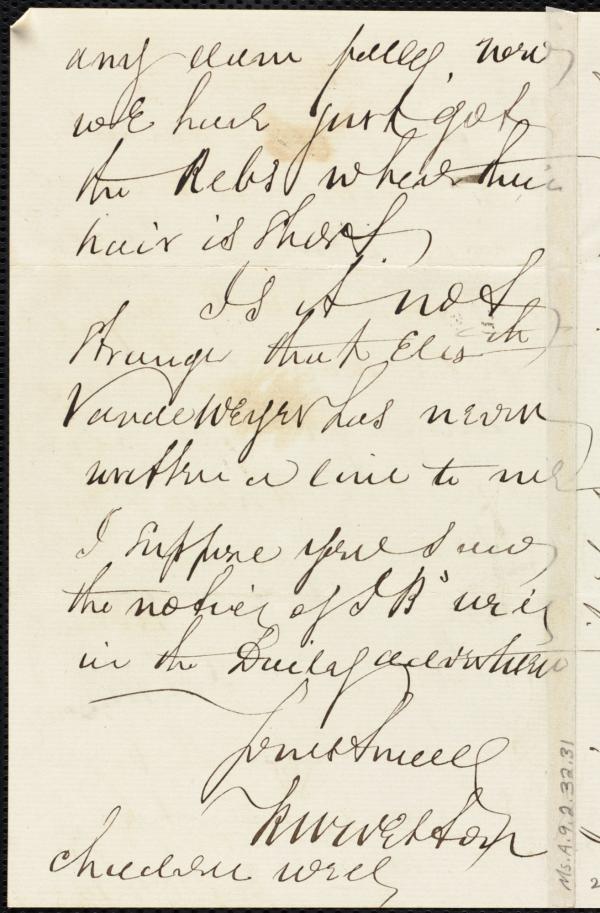 any dam folly, now
we have just got
the Rebs where their
hair is short
Is it not
strange that Elizth
Van de Weyer has never
written a line to me
I suppose you saw
the notice of J B's
in the Daily advertiser
Yours truly
R D Webb
children well
Ms.A.9.2.32.31